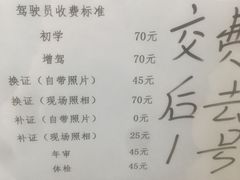 驾驶员收费标准
初学 70元
增驾 70元
换证（自带照片） 45元
换证（现场照相） 70元
补证（自带照片） 0元
补证（现场照相） 25元
年审 45元
体检 45元
交费
后去
1号